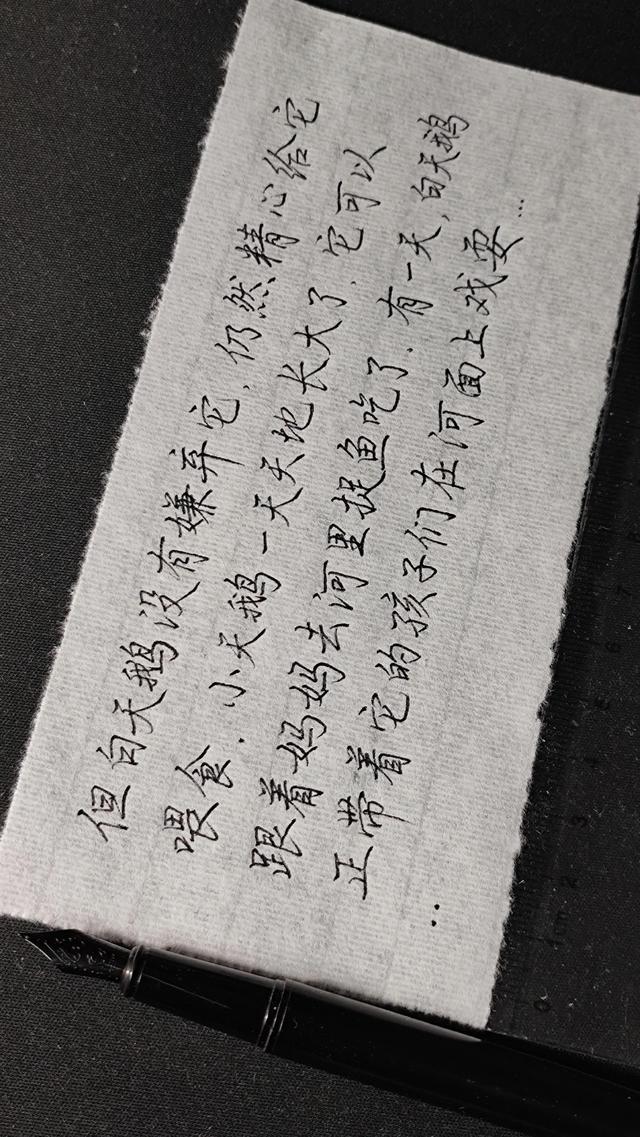 但白天鹅没有嫌弃它,仍然精心给它
喂食.小天鹅一天天地长大了.它可以
跟着妈妈去河里捉鱼吃了.有一天,白天鹅
正带着它的孩子们在河面上戏耍...
..
0 1cm 2 3 4 5 6 7